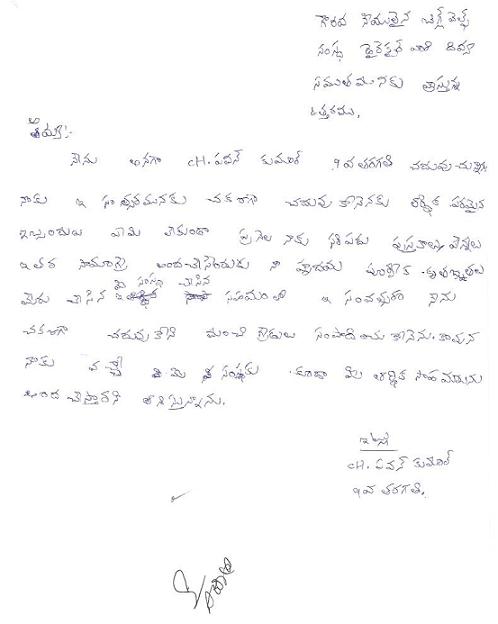 గౌరవ నీయులైన చిగ్లీ వెల్ఫ్
సంస్థ డైరెక్టర్ వారి దివ్య
సముఖమునకు వ్రాస్తున్న
ఉత్తరము.
ఆర్యా:-
నేను అనగా CH. పవన్ కుమార్ 9వ తరగతి చదువుచున్నాను
నాకు ఇ సంవత్సరమునకు చక్కగా చదువు కొనెనకు ఆర్థిక పరమైన
ఇబ్బందులు ఏమి లేకుండా నాకు సరిపడు పుస్తకాలు పెన్నులు
ఇతర సామాగ్రి అందచేసినందుకు నా హృదయ పూర్వక కృతజ్ఞతలు
మీ సంస్థ చేసిన
మీరు చేసిన సహయంతో ఇ సంవత్సరం నేను
చక్కగా చదువు కొని మంచి గ్రేడులు సంపాదించు కొనెను. కావున
నాకు వచ్చే సంవత్సరం కూడా మీ ఆర్థిక సాహయమును
అంద చేస్తారని ఆశిస్తున్నాను.
ఇట్లు
CH. పవన్ కుమార్
9వ తరగతి.